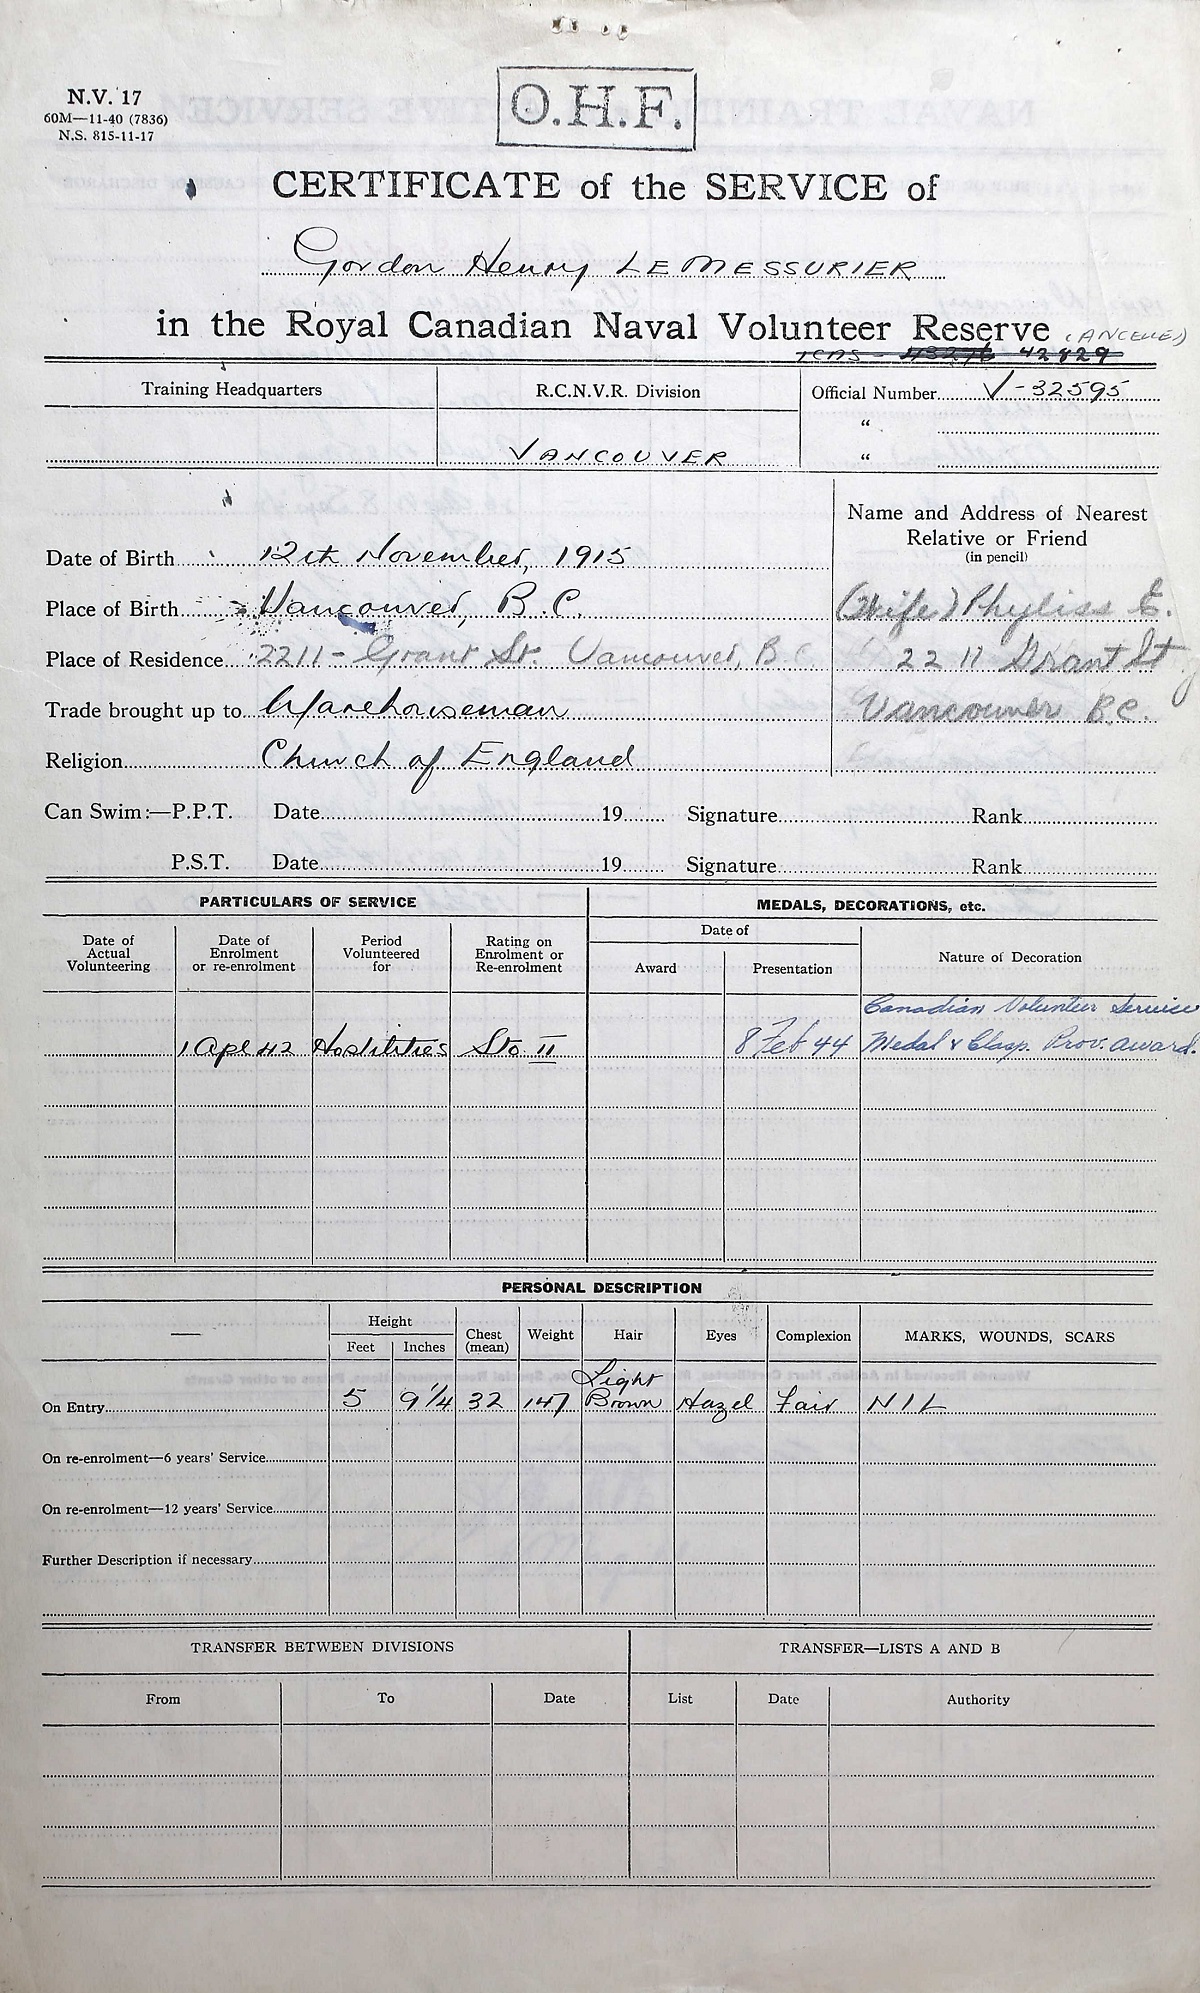 N.V. 17
60M—11-40 (7836)
N.S. 815-11-17
O.H.F.
CERTIFICATE of the SERVICE of
Gordon Henry LE MESSURIER
in the Royal Canadian Naval Volunteer Reserve (CANCELLED)
42829
Training Headquarters R.C.N.V.R. Division Official Number V-32595
"
VANCOUVER "
Name and Address of Nearest
Relative or Friend
(in pencil)
Date of Birth 12th November, 1915
Place of Birth Vancouver, B.C. (Wife) Phyliss E.
Place of Residence 2211 - Grant St. Vancouver, B.C. 2211 Grant St
Trade brought up to Warehouseman Vancouver B.C.
Religion Church of England
Can Swim:—P.P.T. Date 19 Signature Rank
P.S.T. Date 19 Signature Rank
PARTICULARS OF SERVICE MEDALS, DECORATIONS, etc.
Date of Actual Volunteering Date of Enrolment or re-enrolment Period Volunteered for Rating on Enrolment or Re-enrolment Date of Award Presentation Nature of Decoration
Canadian Volunteer Service
1 Apl 42 Hostilities Sto. II 8 Feb 44 Medal & Clasp. Prov. award.
PERSONAL DESCRIPTION
— Height Feet Inches Chest (mean) Weight Hair Eyes Complexion MARKS, WOUNDS, SCARS
On Entry 5 9 1/4 32 147 Light Brown Hazel Fair NIL
On re-enrolment—6 years' Service
On re-enrolment—12 years' Service
Further Description if necessary
TRANSFER BETWEEN DIVISIONS TRANSFER—LISTS A AND B
From To Date List Date Authority